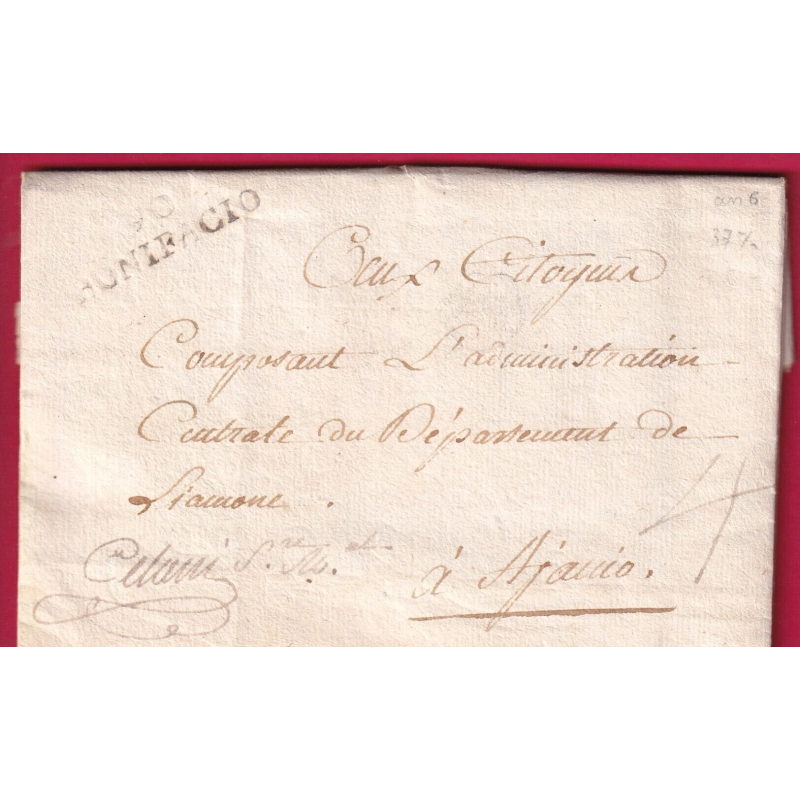 90
BONIFACIO
an 6
Aux Citoyens
Composant L'administration
Centrale du Département de
Liamone.
à Ajacio.
4